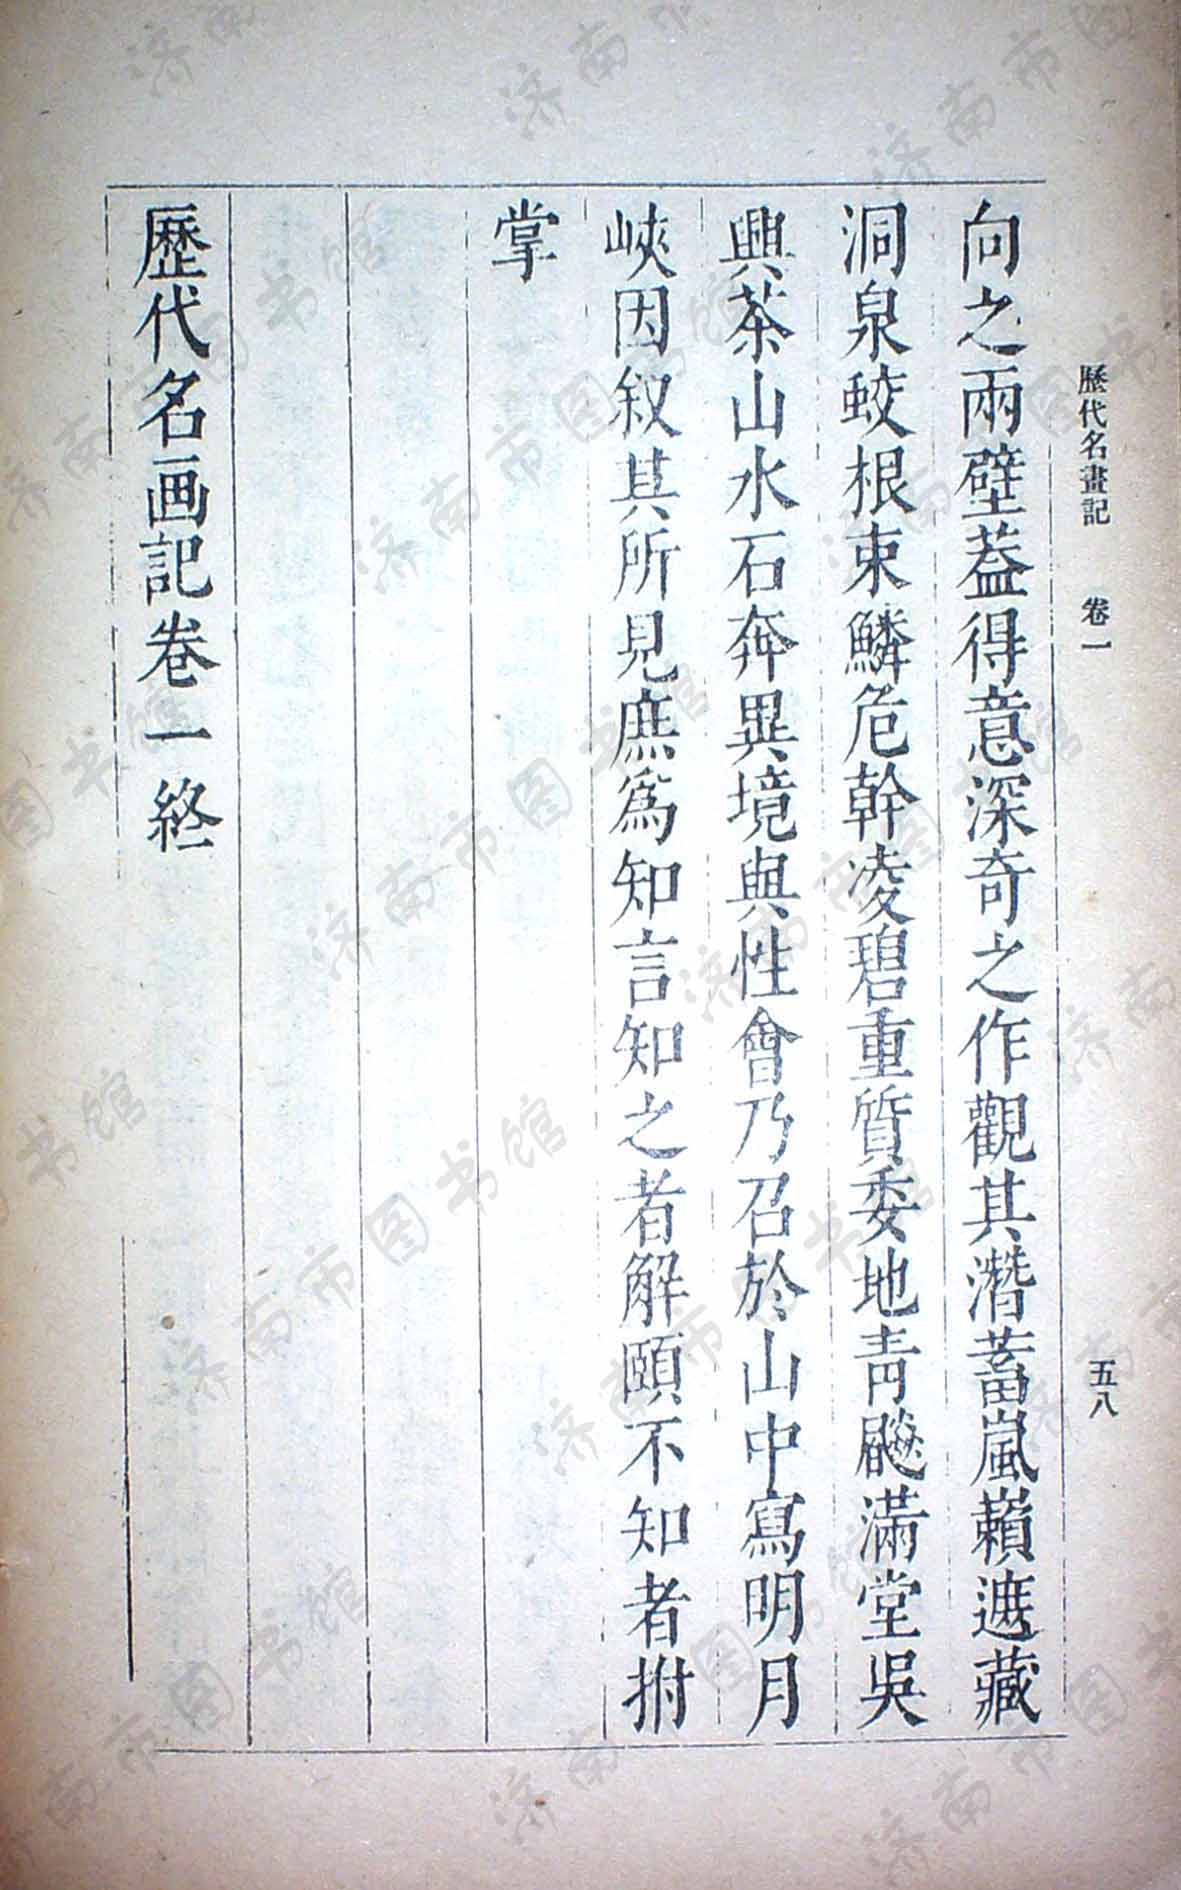 歷代名畫記 卷一 五八
向之兩壁葢得意深奇之作觀其潛蓄嵐瀨遮藏
洞泉蛟根束鱗危幹凌碧重質委地青飈滿堂吳
興茶山水石奔異境與性會乃召於山中寫明月
峽因叙其所見庶爲知言知之者解頤不知者拊
掌
歷代名画記卷一終